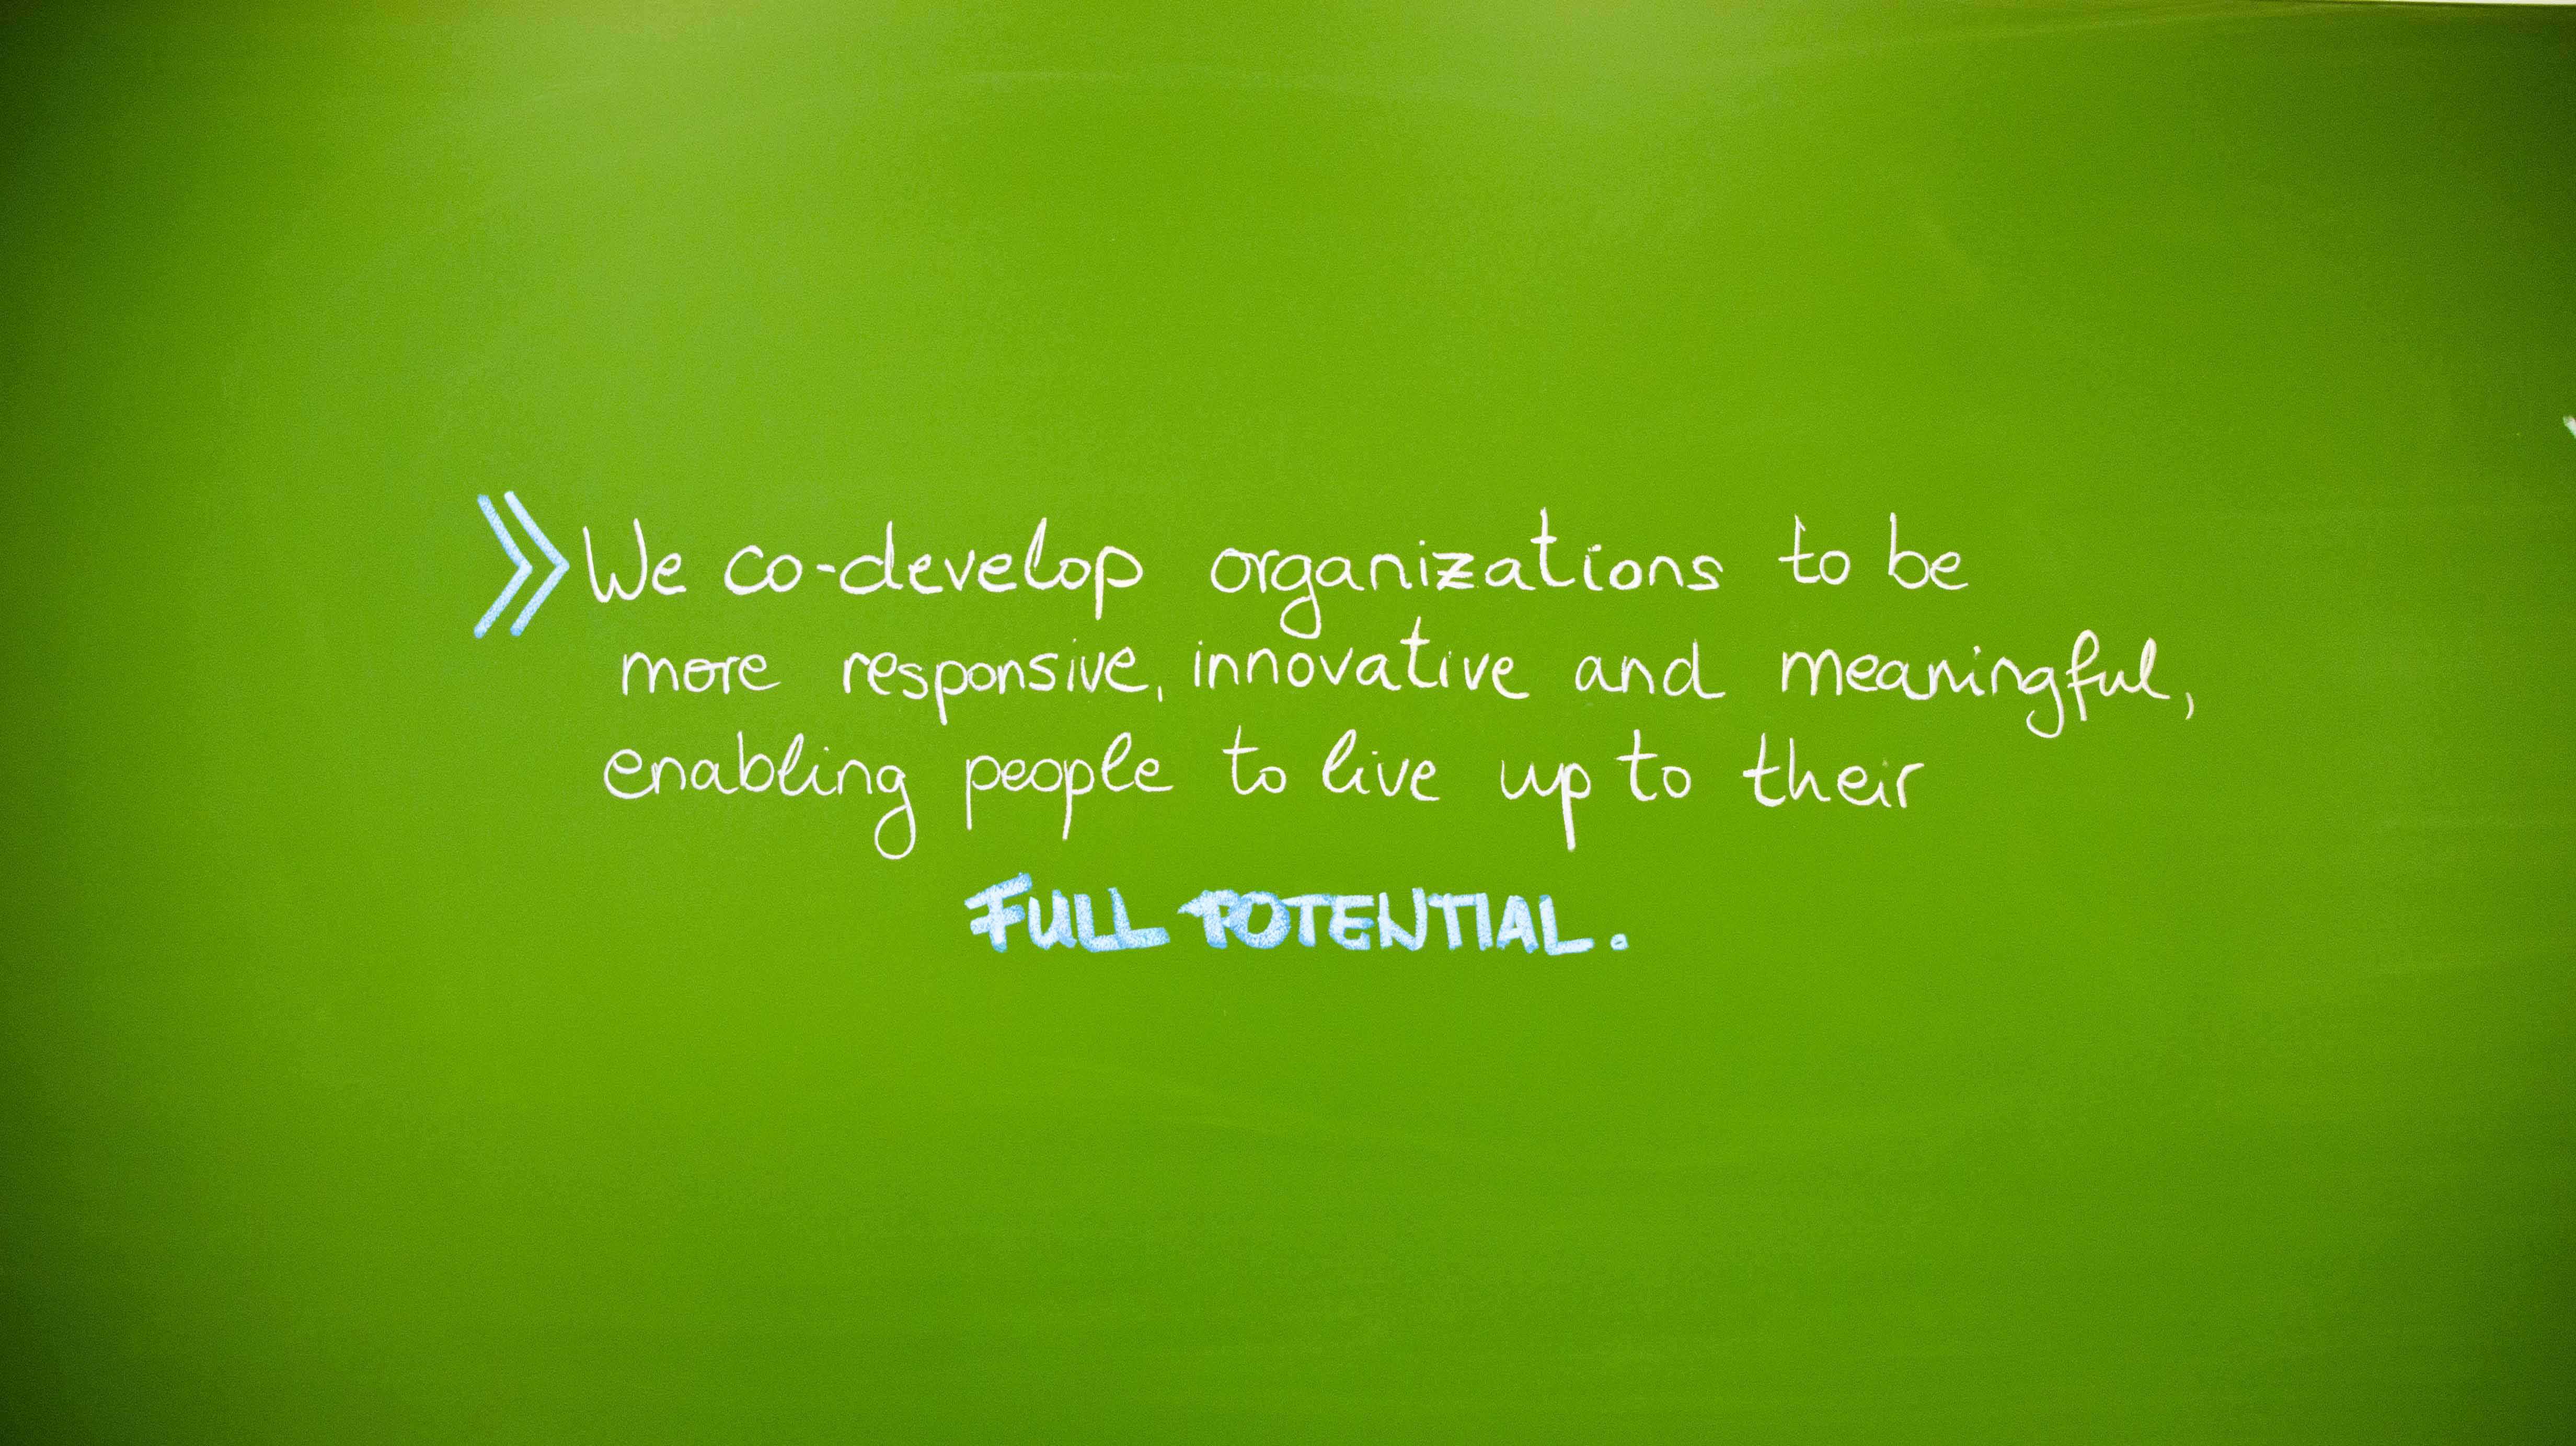 »We co-develop organizations to be
more responsive, innovative and meaningful,
enabling people to live up to their
FULL POTENTIAL.